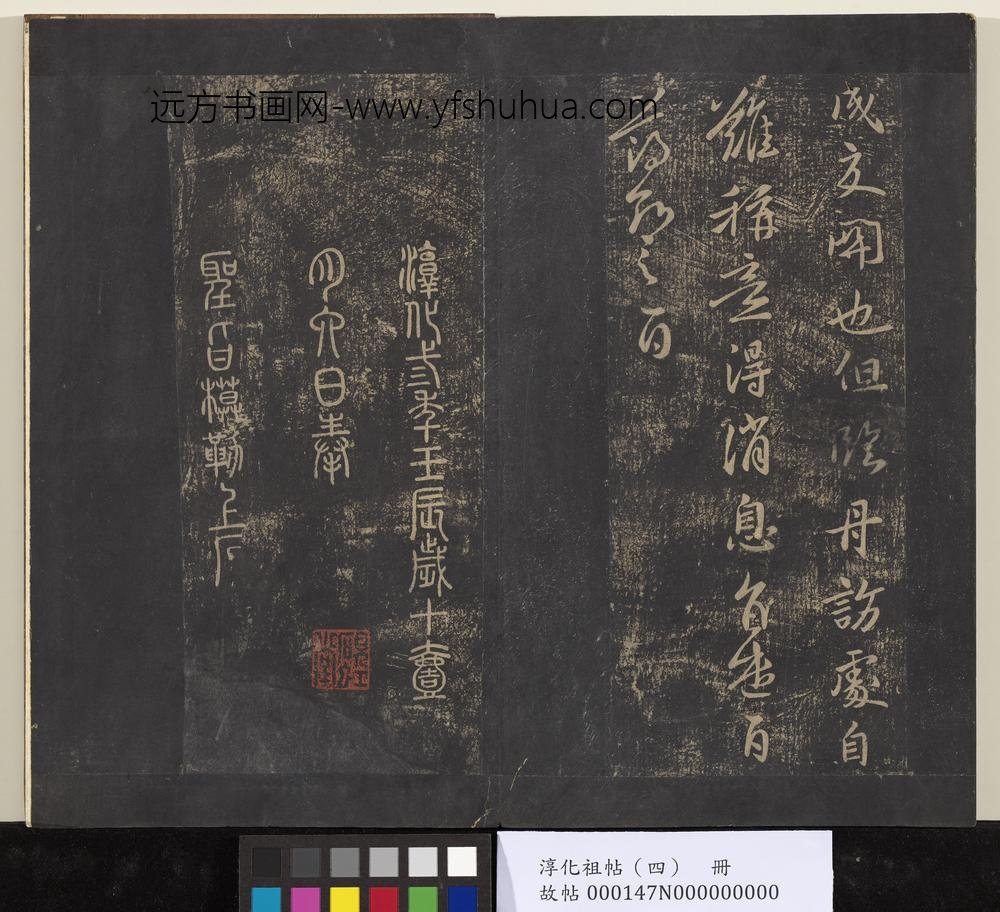 远方书画网-www.yfshuhua.com
成文開也但臨丹訪處自
難稱意得消息自速百
之百
淳化弎年壬辰歲十壹
月六日奉
聖旨模勒上石
淳化祖帖（四） 冊
故帖 000147N000000000